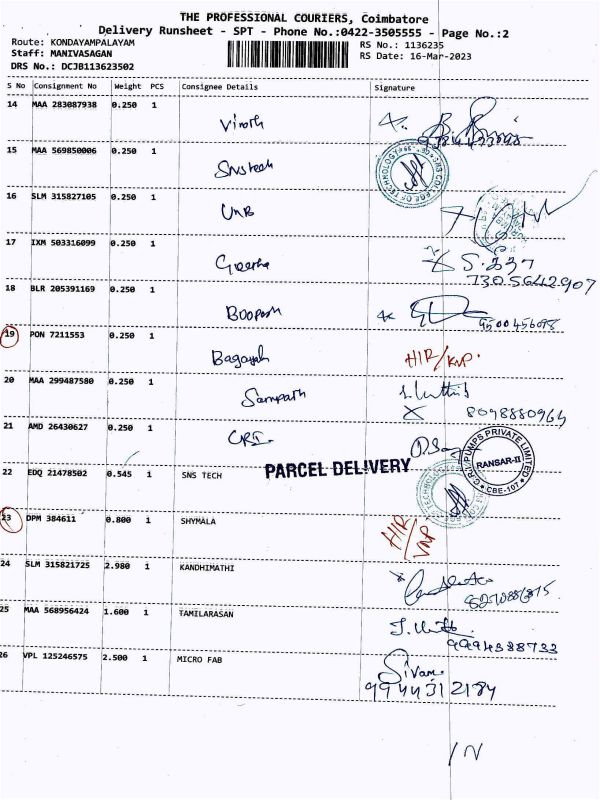 THE PROFESSIONAL COURIERS, Coimbatore
Delivery Runsheet - SPT - Phone No.:0422-3505555 - Page No.:2
Route: KONDAYAMPALAYAM
Staff: MANIVASAGAN
DRS No.: DCJB113623502
RS No.: 1136235
RS Date: 16-Mar-2023
S No Consignment No Weight PCS Consignee Details Signature
14 MAA 283087938 0.250 1 Vinoth
15 MAA 569850006 0.250 1 SNS tech
16 SLM 315827105 0.250 1 UNB
17 IXM 503316099 0.250 1 Geetha
7305642907
18 BLR 205391169 0.250 1 Boopash
9500456098
19 PON 7211553 0.250 1 Bagayah HIR/KNP.
20 MAA 299487580 0.250 1 Sampath
8098880964
21 AMD 26430627 0.250 1 CRI.
PARCEL DELIVERY
C.R.I. PUMPS PRIVATE LIMITED
RANSAR-II
CBE-107
22 EDQ 21478502 0.545 1 SNS TECH
23 DPM 384611 0.800 1 SHYMALA HIR/VNP
24 SLM 315821725 2.980 1 KANDHIMATHI
25 MAA 568956424 1.600 1 TAMILARASAN
9994588733
26 VPL 125246575 2.500 1 MICRO FAB Sivam
9944312184